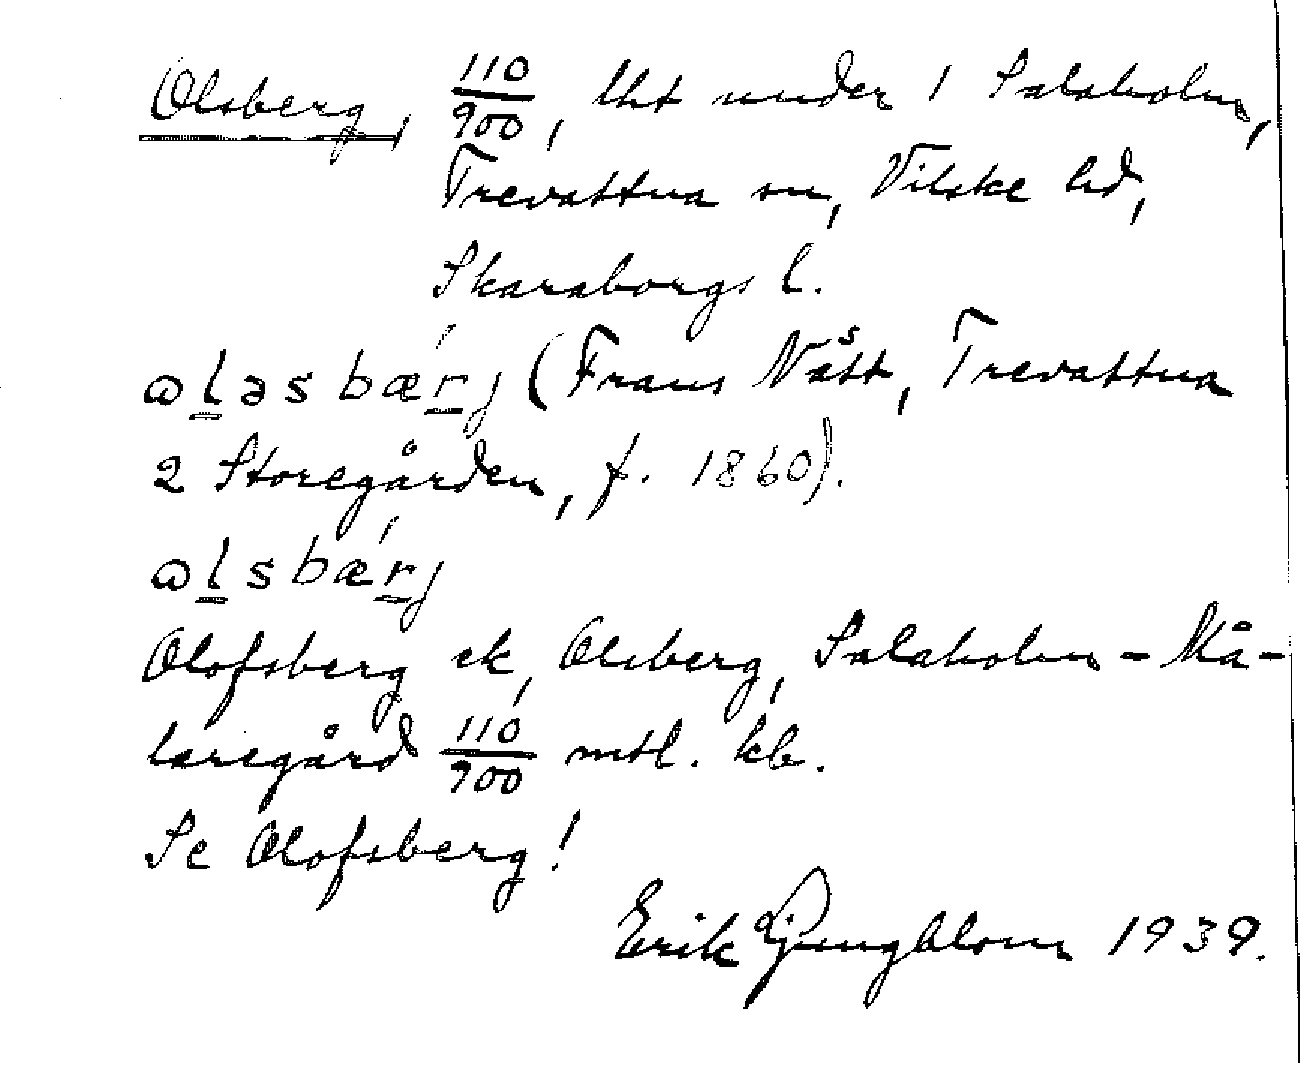 Olsberg, 110/900, lht under 1 Salaholm,
Trevattna sn, Vilske hd,
Skaraborgs l.
ɷl̲əsbær̲j (Frans Nått, Trevattna
2 Storegården, f. 1860).
ɷl̲sbær̲j
Olofsberg ek, Olsberg, Salaholm - Må-
laregård 110/900 mtl. kb.
Se Olofsberg!
Erik Ljungblom 1939.